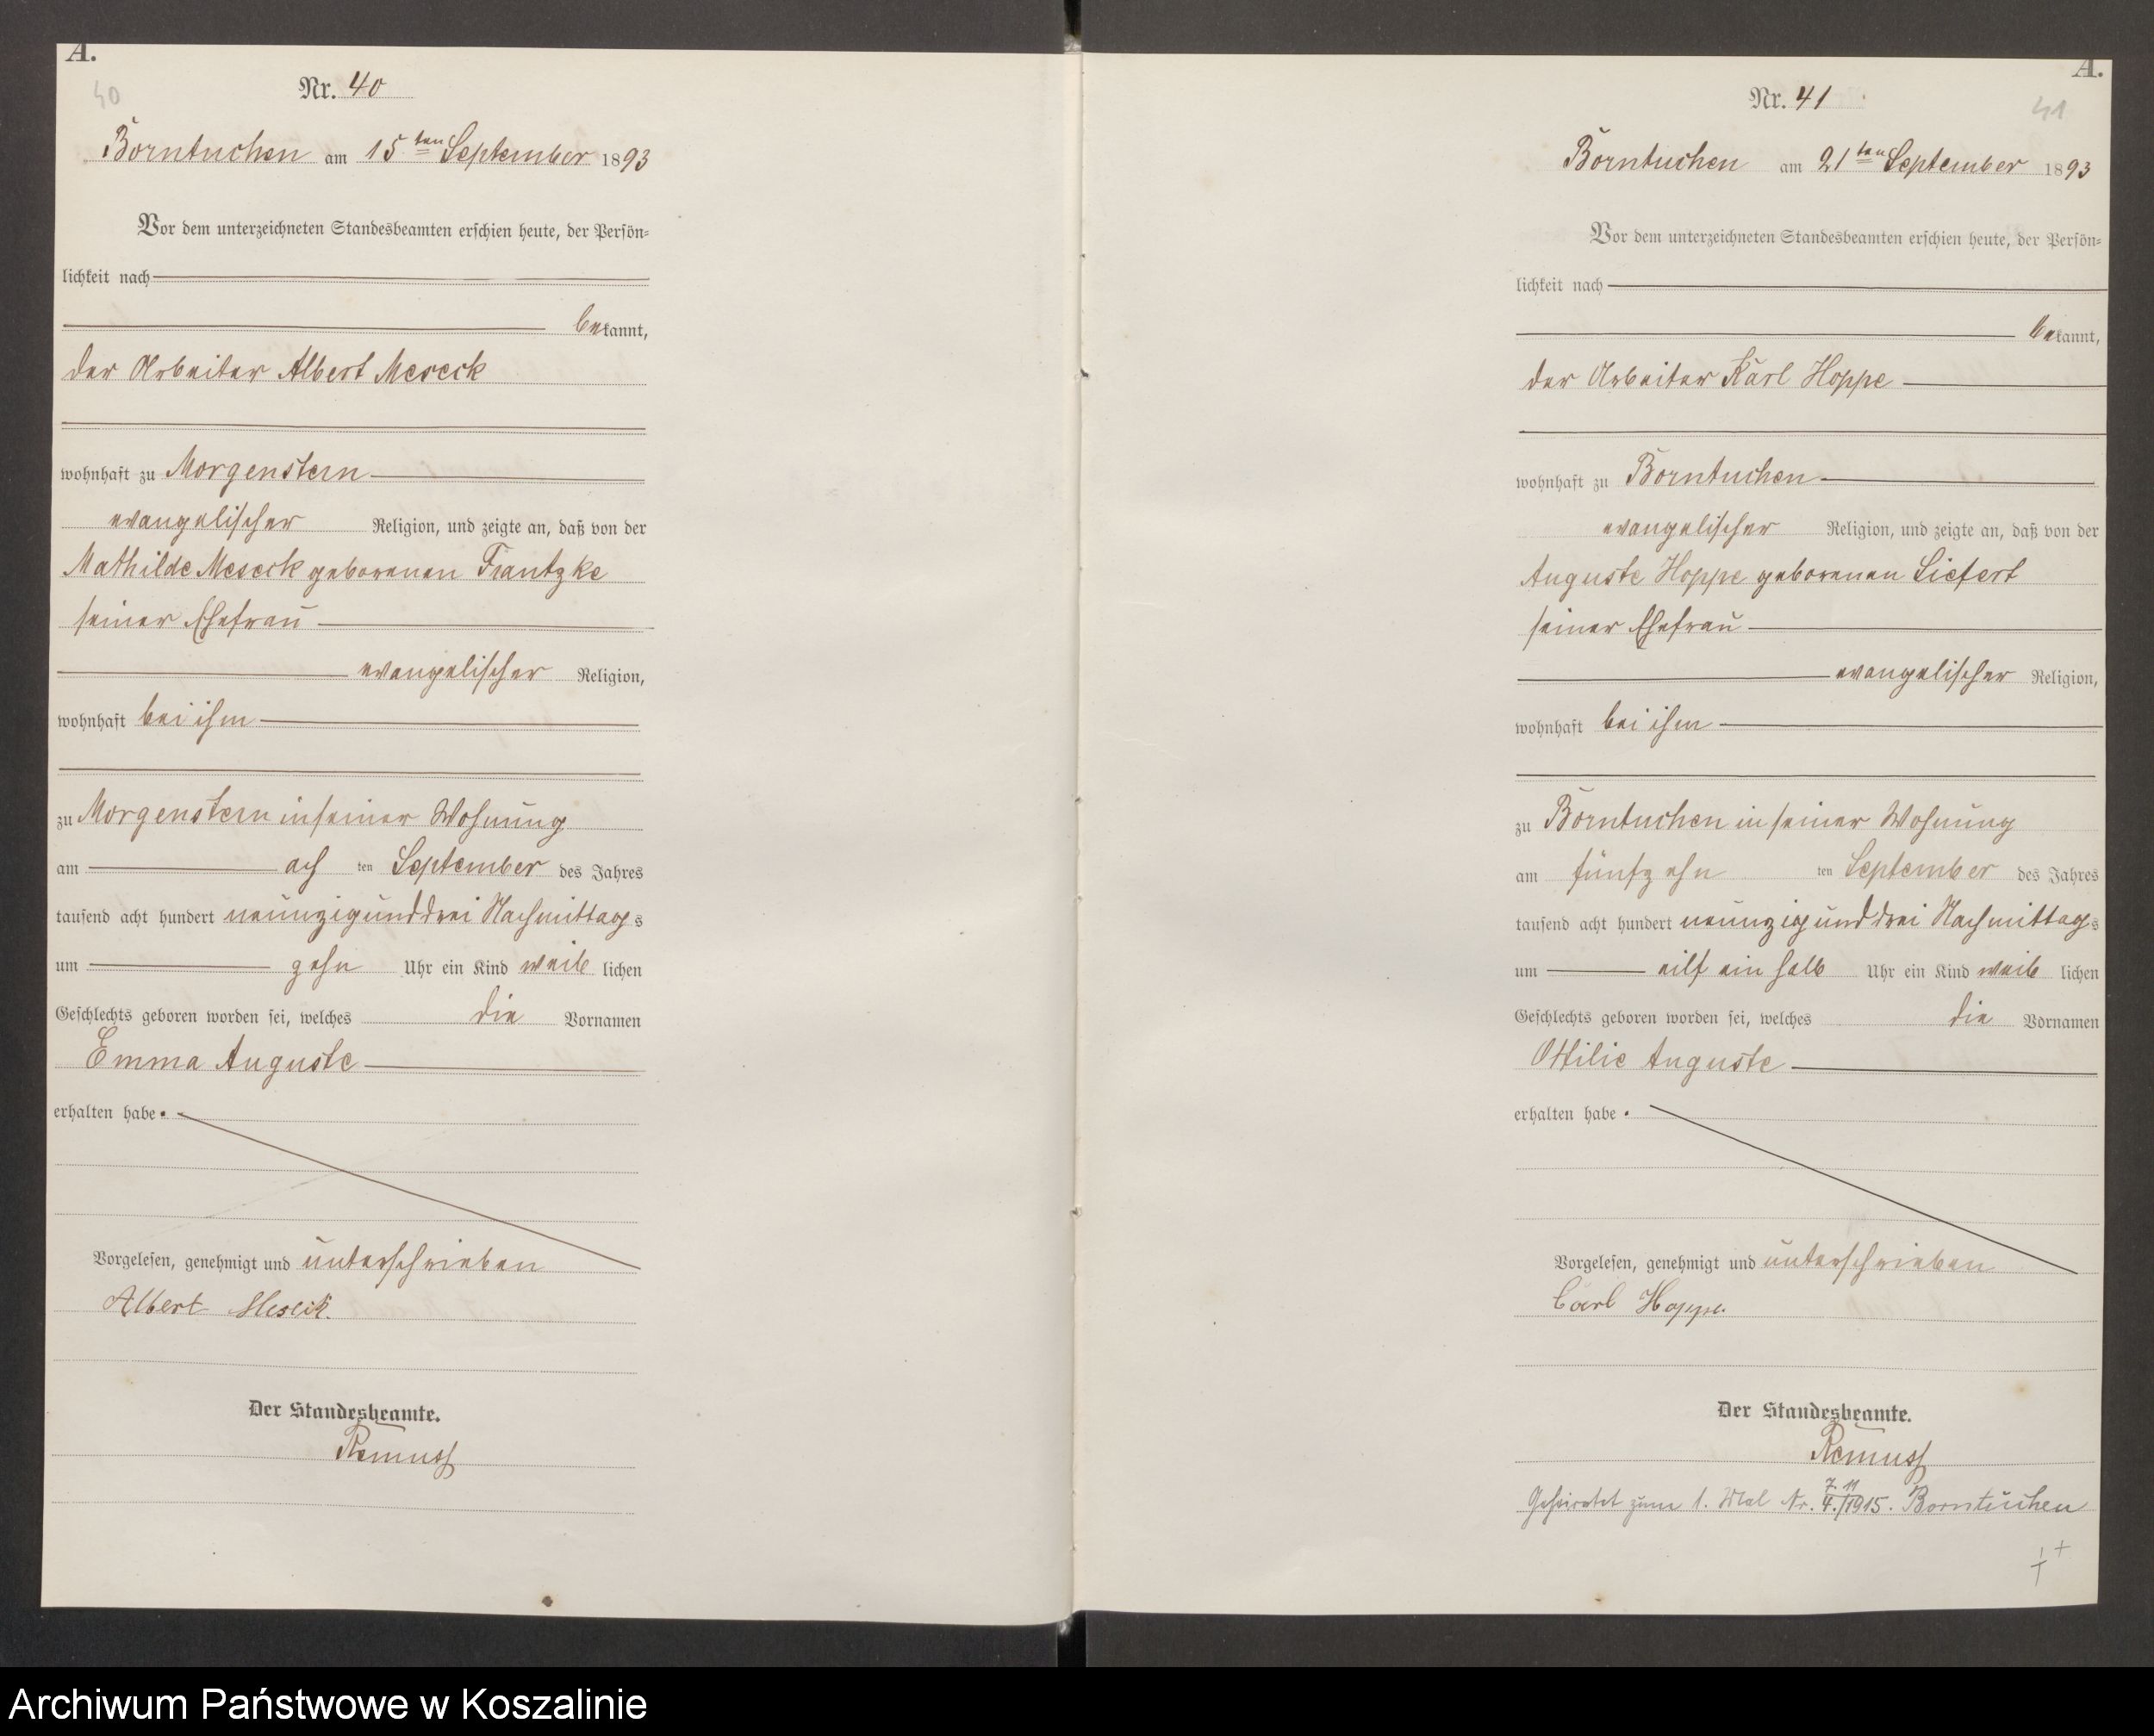 A.
40
Nr. 40
Borntuchen am 15ten September 1893
Vor dem unterzeichneten Standesbeamten erschien heute, der Persön-
lichkeit nach
bekannt,
der Arbeiter Albert Meseck
wohnhaft zu Morgenstern
evangelischer Religion, und zeigte an, daß von der
Mathilde Meseck geborenen Frantzke
seiner Ehefrau
evangelischer Religion,
wohnhaft bei ihm
zu Morgenstern in seiner Wohnung
am ach ten September des Jahres
tausend acht hundert neunzig und drei Nachmittags
um zehn Uhr ein Kind weiblichen
Geschlechts geboren worden sei, welches die Vornamen
Emma Auguste
erhalten habe.
Vorgelesen, genehmigt und unterschrieben
Albert Meseck.
Der Standesbeamte.
Remuss
A.
41
Nr. 41
Borntuchen am 21ten September 1893
Vor dem unterzeichneten Standesbeamten erschien heute, der Persön-
lichkeit nach
bekannt,
der Arbeiter Karl Hoppe
wohnhaft zu Borntuchen
evangelischer Religion, und zeigte an, daß von der
Auguste Hoppe geborenen Liefert
seiner Ehefrau
evangelischer Religion,
wohnhaft bei ihm
zu Borntuchen in seiner Wohnung
am fünfzehn ten September des Jahres
tausend acht hundert neunzig und drei Nachmittags
um eilf ein halb Uhr ein Kind weiblichen
Geschlechts geboren worden sei, welches die Vornamen
Ottilie Auguste
erhalten habe.
Vorgelesen, genehmigt und unterschrieben
Carl Hoppe.
Der Standesbeamte.
Remuss
7. 11
Geheiratet zum 1. Mal Nr. 4./1915. Borntuchen
Archiwum Państwowe w Koszalinie